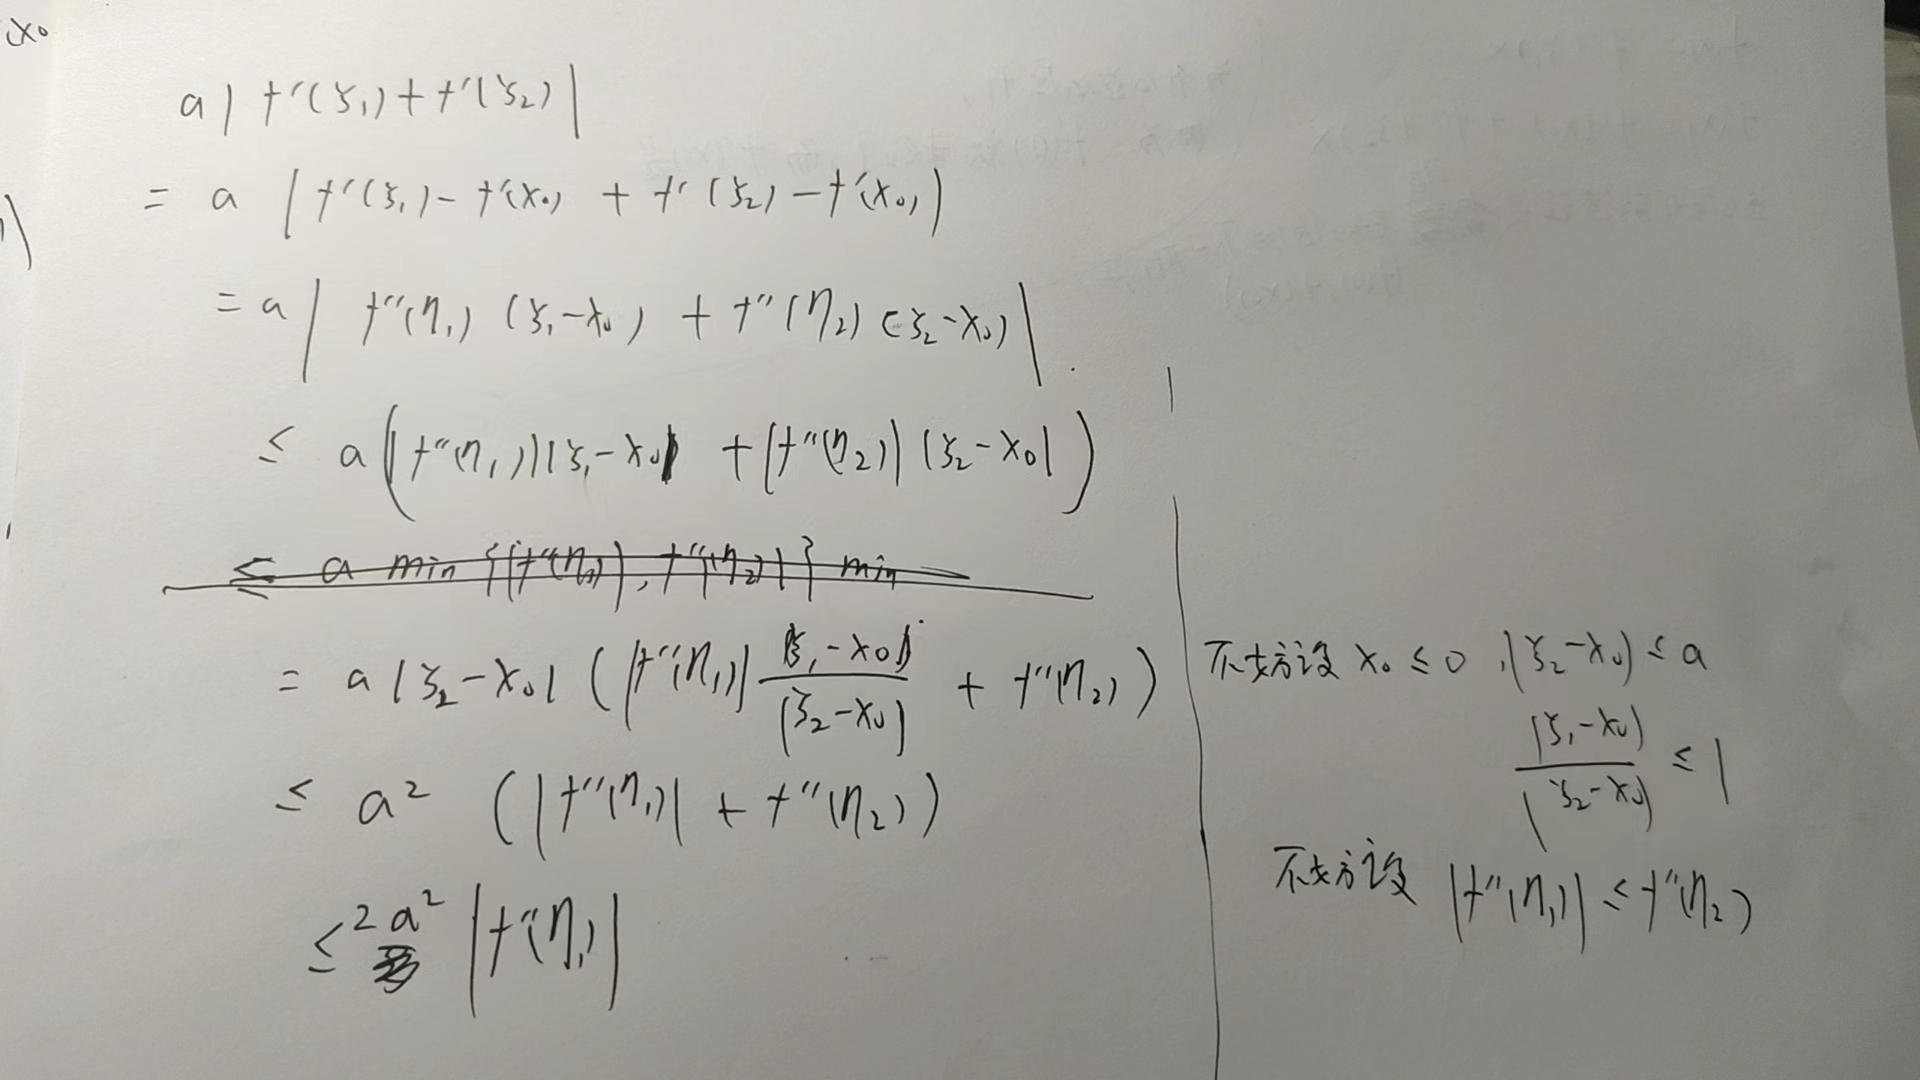 x₀
a|f'(ξ₁)+f'(ξ₂)|
= a |f'(ξ₁)-f'(x₀) + f'(ξ₂)-f'(x₀)|
= a | f''(η₁) (ξ₁-x₀) + f''(η₂) (ξ₂-x₀)|
≤ a(|f''(η₁)||ξ₁-x₀| + |f''(η₂)| |ξ₂-x₀|)
≤ a min {|f''(η₁)|, f''(η₂)|} min
= a |ξ₂-x₀| (|f''(η₁)| |ξ₁-x₀|/|ξ₂-x₀| + f''(η₂))
≤ a² (|f''(η₁)| + f''(η₂))
≤ 2a² |f''(η₁)|
不妨设 x₀ ≤ 0, |ξ₂-x₀| ≤ a
|ξ₁-x₀|/|ξ₂-x₀| ≤ 1
不妨设 |f''(η₁)| ≤ f''(η₂)